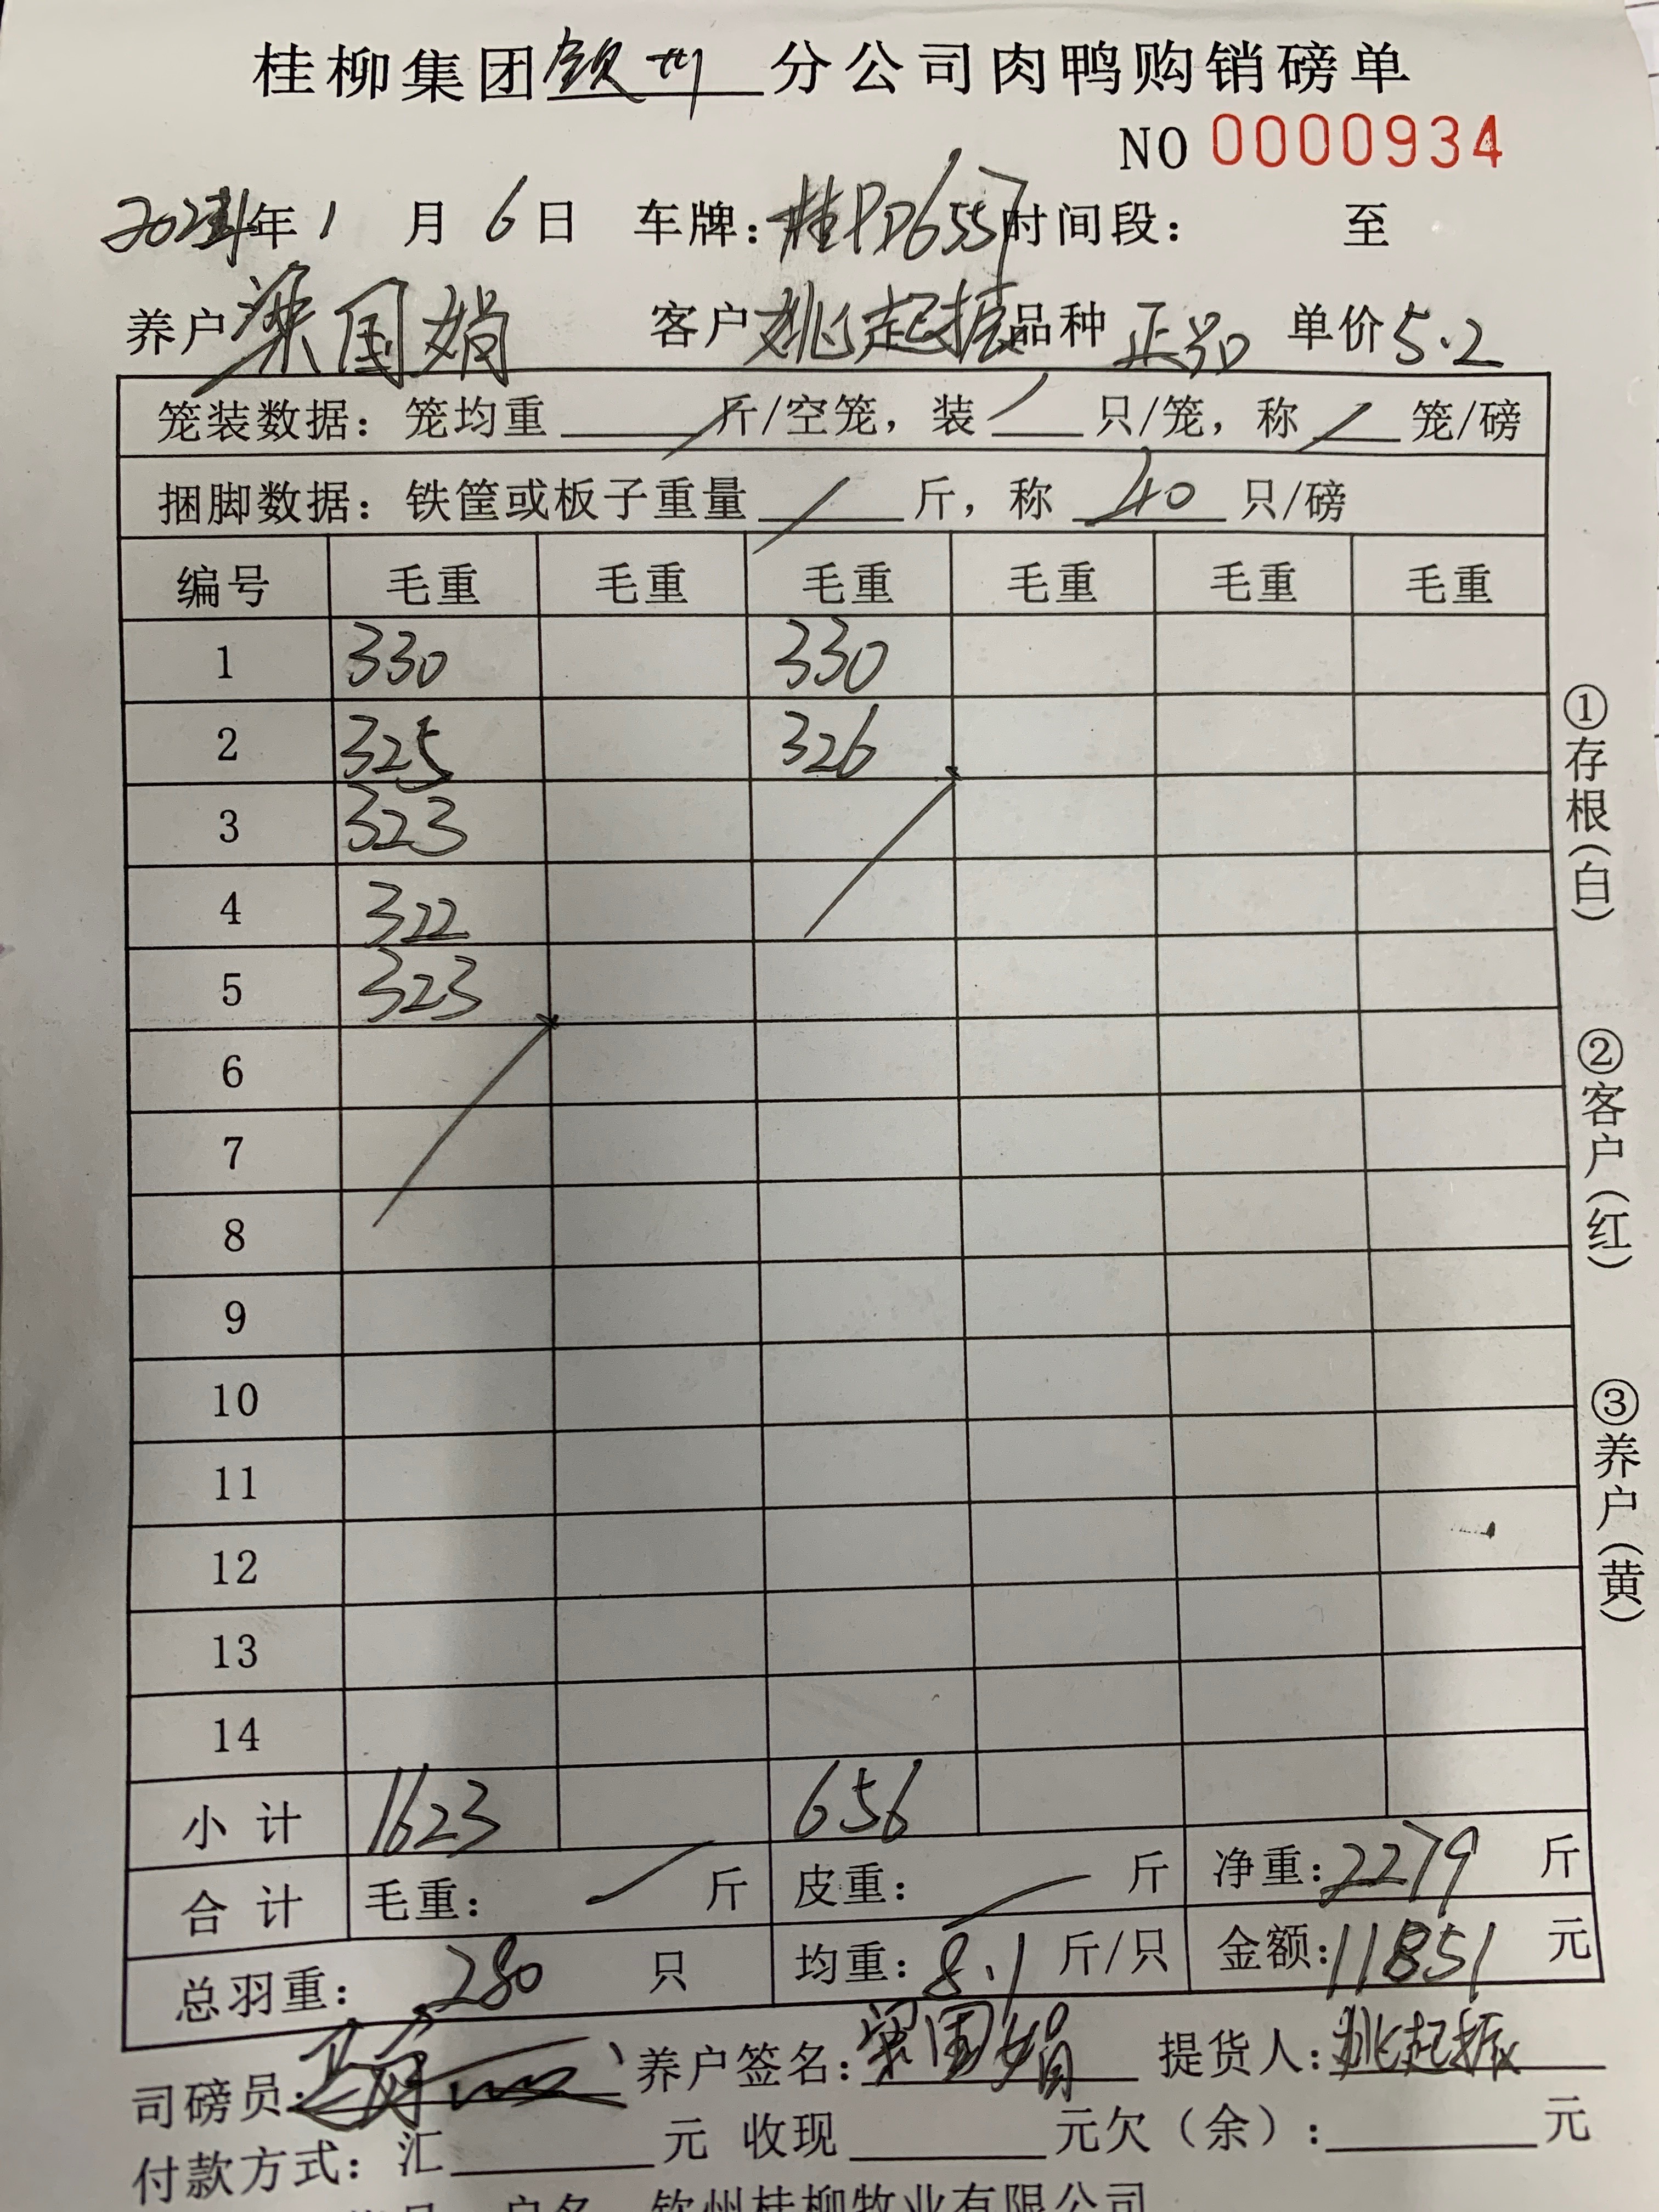 桂柳集团钦州分公司肉鸭购销磅单
NO 0000934
年1月6日 车牌:桂PD6557 时间段: 至
养户 梁国娟 客户 姚起振 品种 正品 单价 5.2
笼装数据: 笼均重 / 斤/空笼, 装 / 只/笼, 称 / 笼/磅
捆脚数据: 铁筐或板子重量 / 斤, 称 40 只/磅
编号 毛重 毛重 毛重 毛重 毛重 毛重
1 330 330
2 325 326
3 323
4 322
5 323
6
7
8
9
10
11
12
13
14
小计 1623 656
合计 毛重: / 斤 皮重: / 斤 净重: 2279 斤
总羽重: 280 只 均重: 8.1 斤/只 金额: 11851 元
司磅员: 养户签名: 梁国娟 提货人: 姚起振
付款方式: 汇 元 收现 元 欠(余): 元
户名 钦州桂柳牧业有限公司
①存根(白)
②客户(红)
③养户(黄)